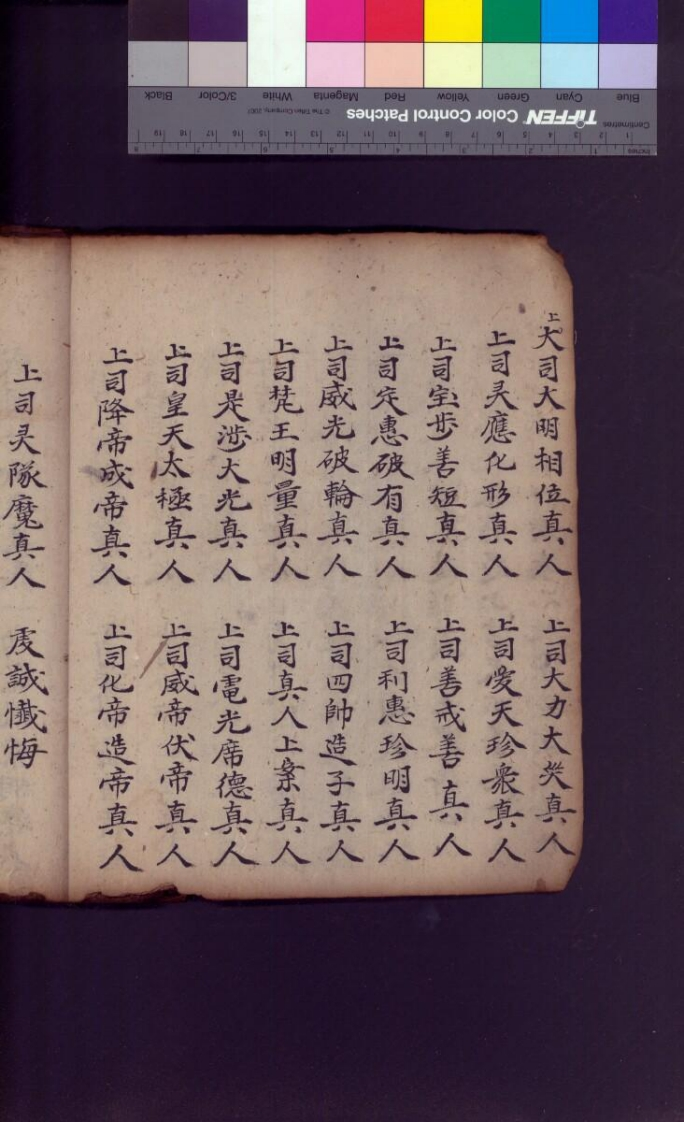 上大司大明相位真人　上司大力大癸真人
上司灵應化形真人　上司愛天珍衆真人
上司宝步善短真人　上司善戒善真人
上司定惠破有真人　上司利惠珍明真人
上司威光破輪真人　上司四帥造子真人
上司梵王明量真人　上司真人上案真人
上司是涉大光真人　上司電光席德真人
上司皇天太極真人　上司威帝伏帝真人
上司降帝成帝真人　上司化帝造帝真人
上司灵隊魔真人　虔誠懺悔
Inches 1 2 3 4 5 6 7 8
Centimetres 1 2 3 4 5 6 7 8 9 10 11 12 13 14 15 16 17 18 19
TIFFEN Color Control Patches © The Tiffen Company, 2007
Blue Cyan Green Yellow Red Magenta White 3/Color Black